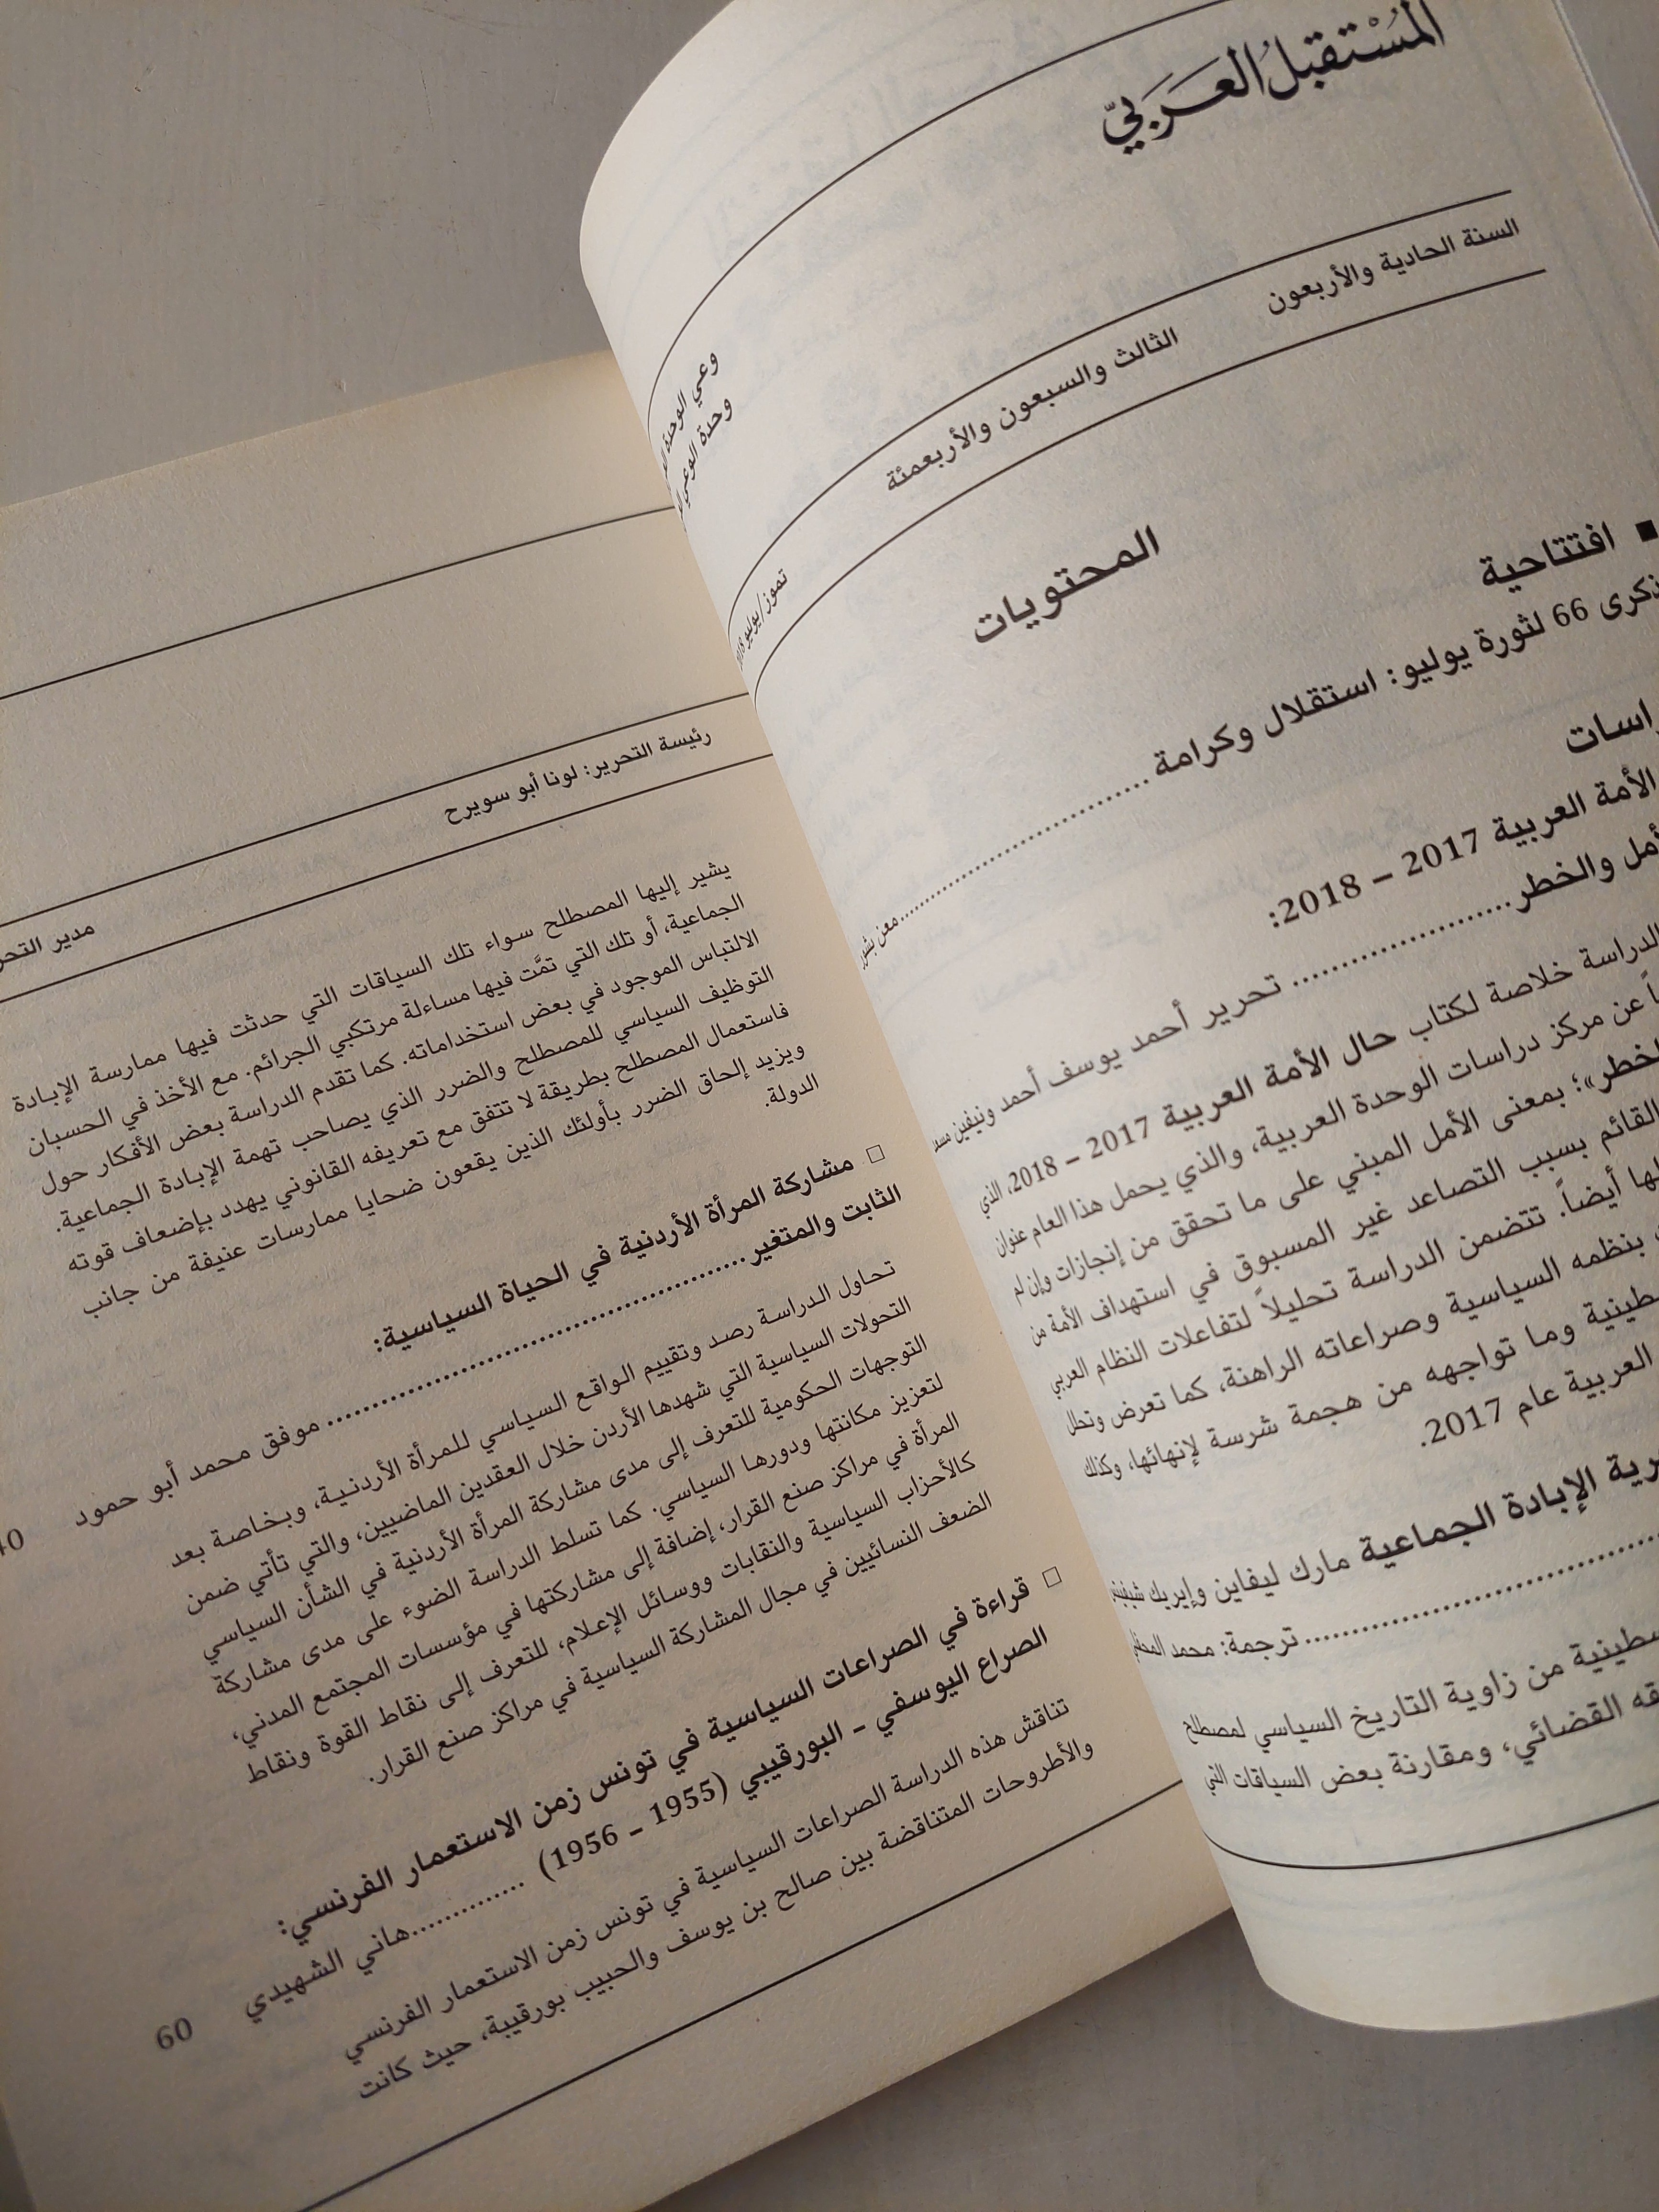 المُسْتقبلُ العَرَبيّ
وعي الوحدة
وحدة الوعي
السنة الحادية والأربعون
الثالث والسبعون والأربعمئة
تموز/يوليو
المحتويات
■ افتتاحية
ذكرى 66 لثورة يوليو: استقلال وكرامة ........ معن بشور
الأمة العربية 2017 – 2018:
والخطر ........ تحرير أحمد يوسف أحمد ونيفين مسعد
الدراسة خلاصة لكتاب حال الأمة العربية 2017 – 2018، الذي
عن مركز دراسات الوحدة العربية، والذي يحمل هذا العام عنوان
؛ بمعنى الأمل المبني على ما تحقق من إنجازات وإن لم
القائم بسبب التصاعد غير المسبوق في استهداف الأمة من
أيضاً. تتضمن الدراسة تحليلاً لتفاعلات النظام العربي
بنظمه السياسية وصراعاته الراهنة، كما تعرض وتحلل
وما تواجهه من هجمة شرسة لإنهائها، وكذلك
العربية عام 2017.
الإبادة الجماعية مارك ليفاين وإيريك
........ ترجمة: محمد
من زاوية التاريخ السياسي لمصطلح
القضائي، ومقارنة بعض السياقات التي
رئيسة التحرير: لونا أبو سويرح
مدير
يشير إليها المصطلح سواء تلك السياقات التي حدثت فيها ممارسة الإبادة
الجماعية، أو تلك التي تمَّت فيها مساءلة مرتكبي الجرائم. مع الأخذ في الحسبان
الالتباس الموجود في بعض استخداماته. كما تقدم الدراسة بعض الأفكار حول
التوظيف السياسي للمصطلح والضرر الذي يصاحب تهمة الإبادة الجماعية.
فاستعمال المصطلح بطريقة لا تتفق مع تعريفه القانوني يهدد بإضعاف قوته
ويزيد إلحاق الضرر بأولئك الذين يقعون ضحايا ممارسات عنيفة من جانب
الدولة.
□ مشاركة المرأة الأردنية في الحياة السياسية:
الثابت والمتغير ........ موفق محمد أبو حمود
تحاول الدراسة رصد وتقييم الواقع السياسي للمرأة الأردنية، وبخاصة بعد
التحولات السياسية التي شهدها الأردن خلال العقدين الماضيين، والتي تأتي ضمن
التوجهات الحكومية للتعرف إلى مدى مشاركة المرأة الأردنية في الشأن السياسي
لتعزيز مكانتها ودورها السياسي. كما تسلط الدراسة الضوء على مدى مشاركة
المرأة في مراكز صنع القرار، إضافة إلى مشاركتها في مؤسسات المجتمع المدني،
كالأحزاب السياسية والنقابات ووسائل الإعلام، للتعرف إلى نقاط القوة ونقاط
الضعف النسائيين في مجال المشاركة السياسية في مراكز صنع القرار.
□ قراءة في الصراعات السياسية في تونس زمن الاستعمار الفرنسي:
الصراع اليوسفي - البورقيبي (1955 – 1956) ........ هاني الشهيدي 60
تناقش هذه الدراسة الصراعات السياسية في تونس زمن الاستعمار الفرنسي
والأطروحات المتناقضة بين صالح بن يوسف والحبيب بورقيبة، حيث كانت